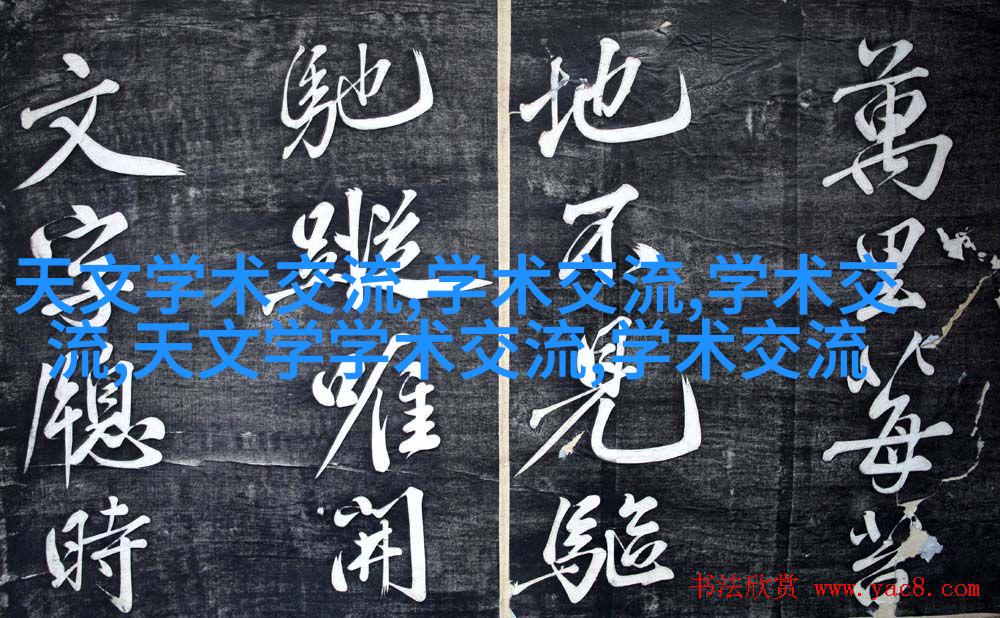 萬里每
地不見驅
馳蹤唯開
文字牕時
天文学术交流,学术交流,学术交
流,天文学学术交流,学术交流
书法欣赏 www.yac8.com